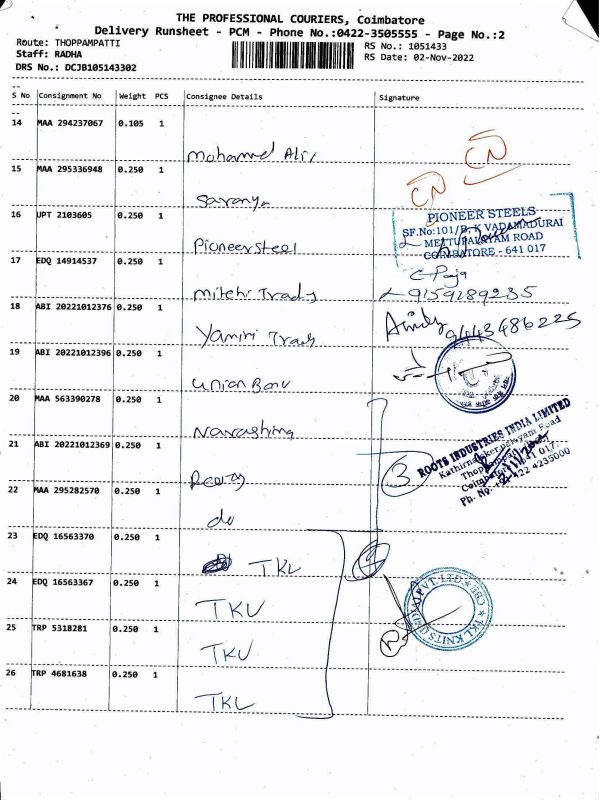 THE PROFESSIONAL COURIERS, Coimbatore
Delivery Runsheet - PCM - Phone No.:0422-3505555 - Page No.:2
Route: THOPPAMPATTI
RS No.: 1051433
Staff: RADHA
RS Date: 02-Nov-2022
DRS No.: DCJB105143302
S No Consignment No Weight PCS Consignee Details Signature
14 MAA 294237067 0.105 1
Mohammed Ali
CN
15 MAA 295336948 0.250 1
Saranya
CN
16 UPT 2103605 0.250 1
Pioneer Steel
PIONEER STEELS
SF.No:101/B, K VADAMADURAI
METTUPALAYAM ROAD
COIMBATORE - 641 017
17 EDQ 14914537 0.250 1
9159189235
18 ABI 20221012376 0.250 1
9443486225
19 ABI 20221012396 0.250 1
Union
20 MAA 563390278 0.250 1
21 ABI 20221012369 0.250 1
3
ROOTS INDUSTRIES INDIA LIMITED
22 MAA 295282570 0.250 1
do
23 EDQ 16563370 0.250 1
TKL
4
24 EDQ 16563367 0.250 1
TKL
TKL KNITS (INDIA) PVT LTD
CBE
25 TRP 5318281 0.250 1
TKL
26 TRP 4681638 0.250 1
TKL